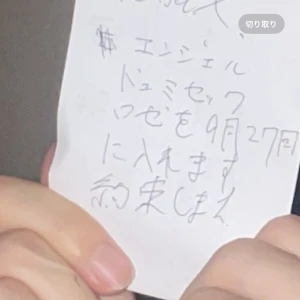 切り取り
エンジェル
ドュミセック
ロゼを9月27日
に入れます
約束します